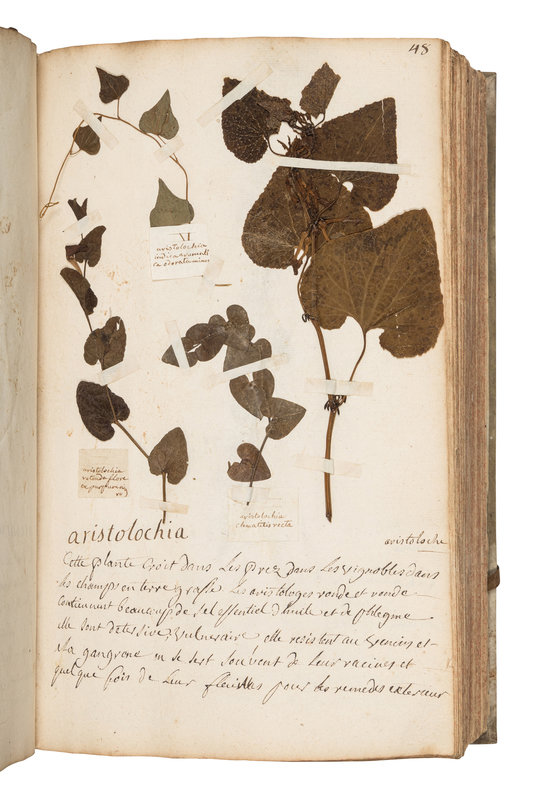 48
XI
aristolochia
indica aromati
ca odorata minor
aristolochia
rotunda flore
ex purpura nig
ro
aristolochia
clematitis recta
aristolochia
aristoloche
Cette plante croit dans Les prez dans Les vignobles dans
les champs en terre grasse Les aristologes ronde et ronde
contiennent beaucoup de sel essentiel d'huile et de phlegme
elle sont detersive vulneraire elle resistent au venins et
a La gangrene on se sert souvent de Leur racines et
quelque fois de Leur fleuilles pour les remedes exterieur